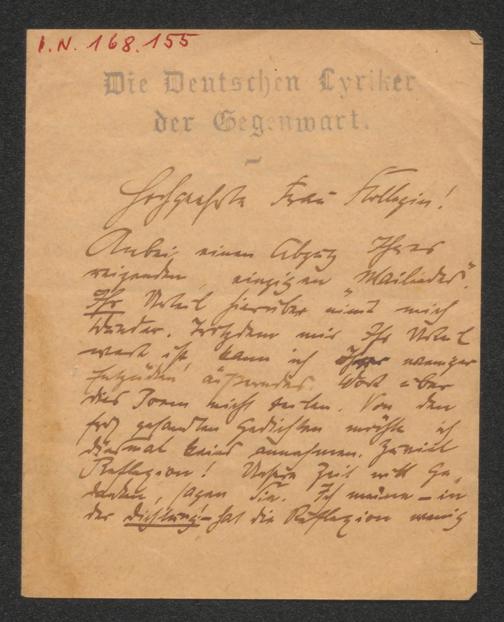 I.N. 168.155
Die Deutschen Lyriker
der Gegenwart.
Hochgeehrte Frau Kollegin!
Anbei einen Abzug Ihres
reizenden, einzigen "Mailiedes".
Ihr Urteil hierüber nimt mich
Wunder. Trotzdem mir Ihr Urteil
wert ist, kann ich weniger
Entzücken äußerndes Wort über
dies Poem nicht teilen. Von den
gesandten Gedichten möchte ich
diesmal keins annehmen. Zuviel
Reflexion! Unsere Zeit will Ge-
danken, sagen Sie. Ich meine – in
der Dichtung – hat die Reflexion wenig